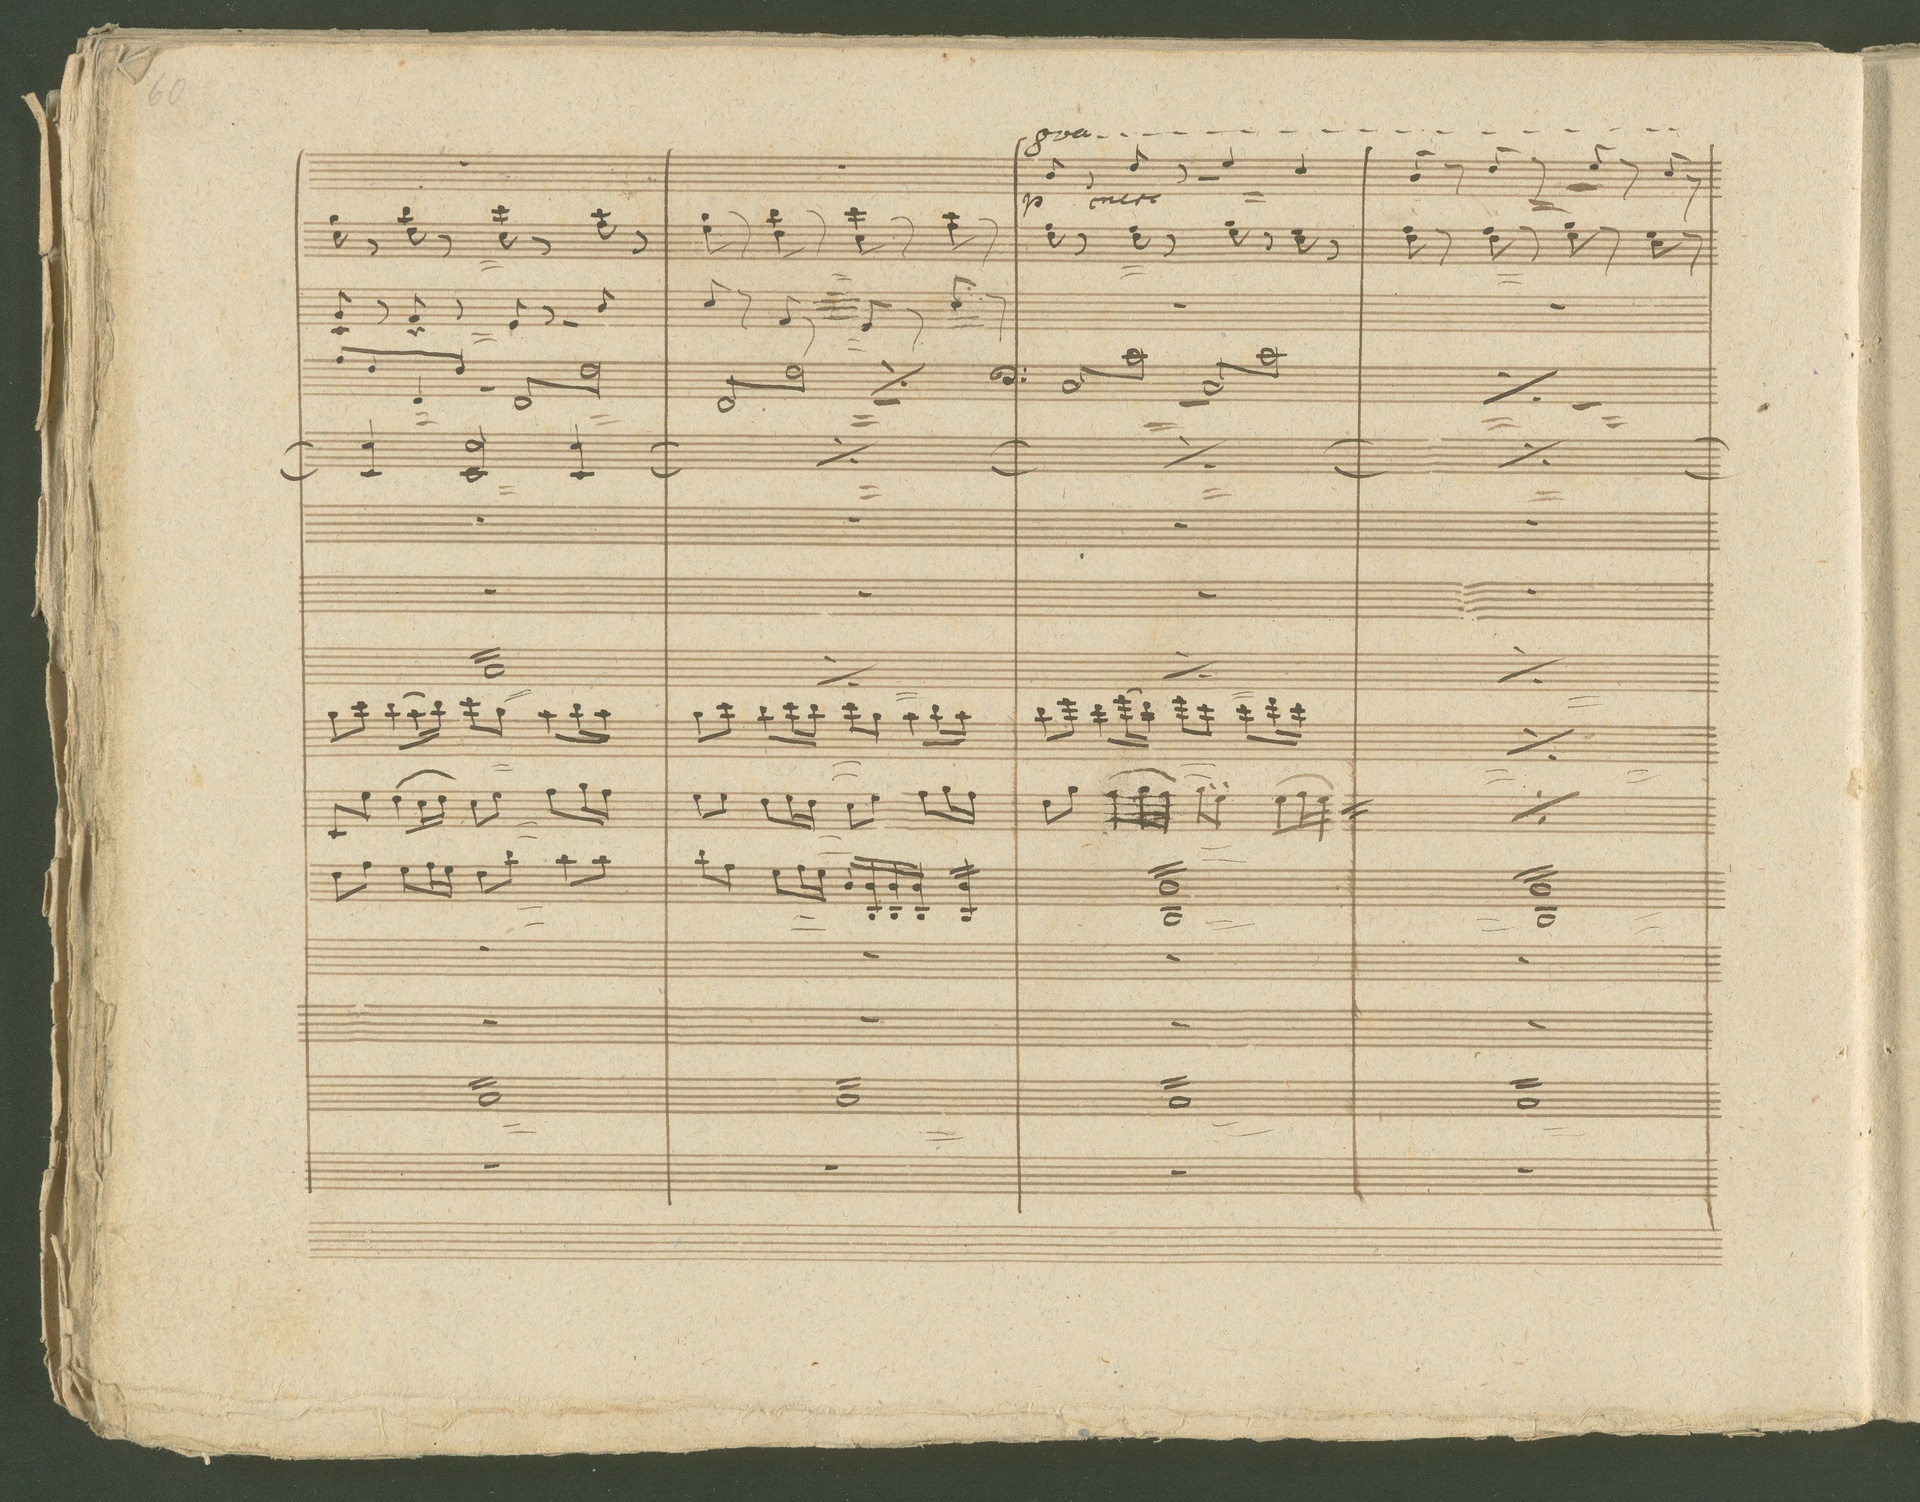 60
8va
p cresc